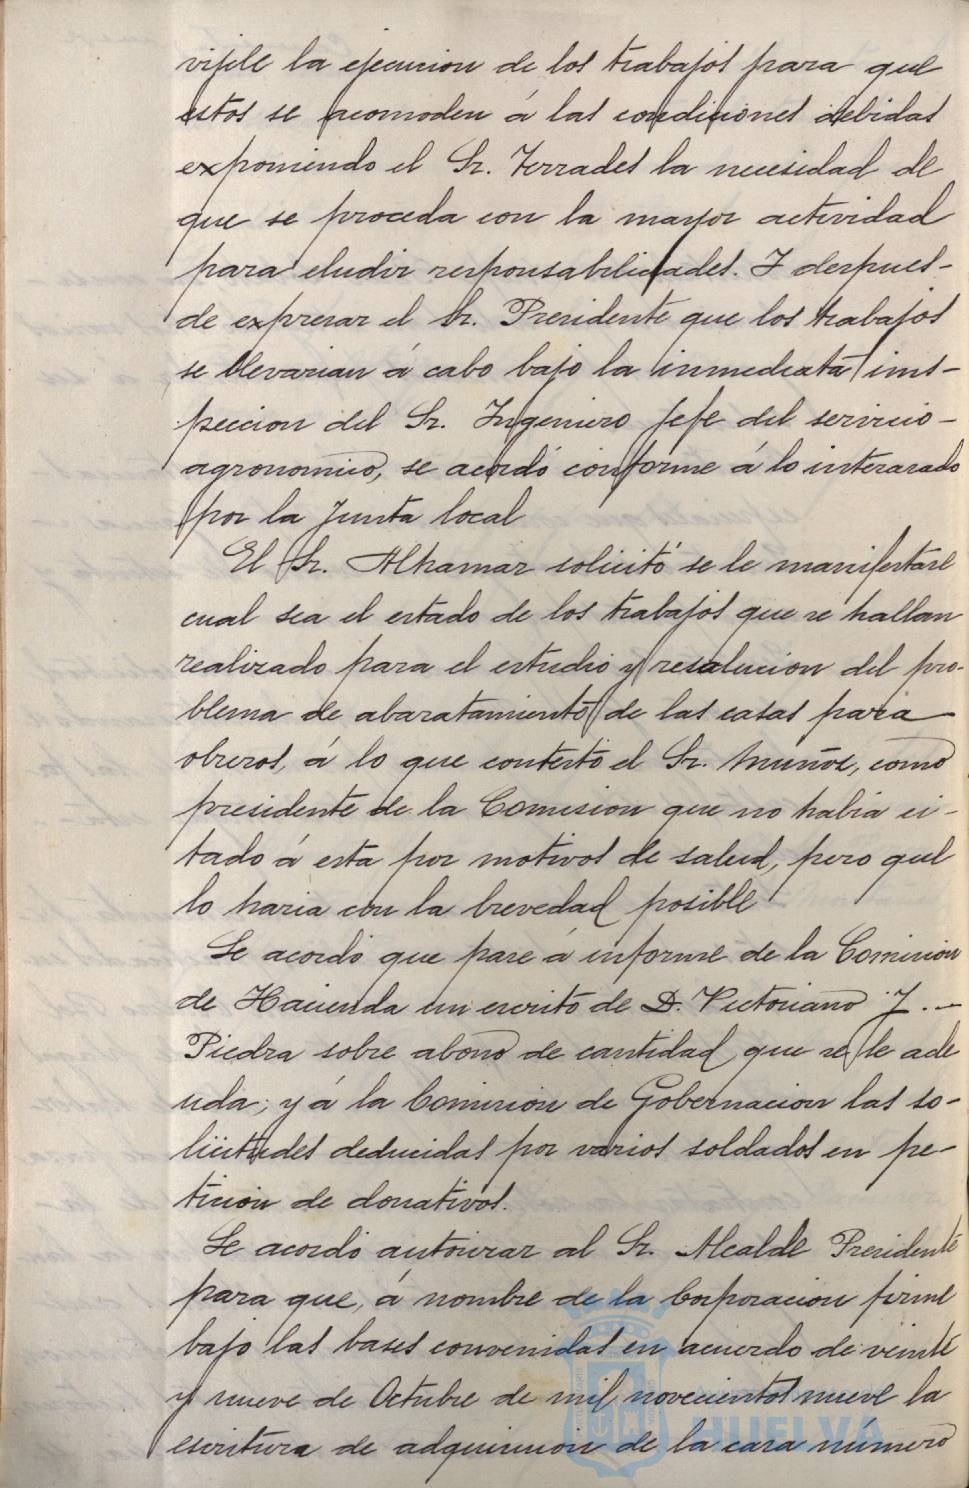 vijile la ejecucion de los trabajos para que
estos se acomoden á las condiciones debidas
exponiendo el Sr. Terrades la necesidad de
que se proceda con la mayor actividad
para eludir responsabilidades. Y despues-
de expresar el Sr. Presidente que los trabajos
se llevarian á cabo bajo la inmediata ins-
peccion del Sr. Ingeniero Jefe del servicio-
agronomico, se acordó conforme á lo interesado
por la Junta local
El Sr. Alhamar solicitó se le manifestase
cual sea el estado de los trabajos que se hallan
realizado para el estudio y resolucion del pro-
blema de abaratamiento de las casas para
obreros, á lo que contestó el Sr. Muñoz, como
presidente de la Comision que no habia ci-
tado á esta por motivos de salud, pero que
lo haria con la brevedad posible
Se acordó que pase á informe de la Comision
de Hacienda un escrito de D. Victoriano J. -
Piedra sobre abono de cantidad que se le ade
uda; y á la Comision de Gobernacion las so-
licitudes deducidas por varios soldados en pe-
ticion de donativos.
Se acordó autorizar al Sr. Alcalde Presidente
para que, á nombre de la Corporacion firme
bajo las bases convenidas en acuerdo de veinte
y nueve de Octubre de mil novecientos nueve la
escritura de adquisicion de la casa número
HUELVA